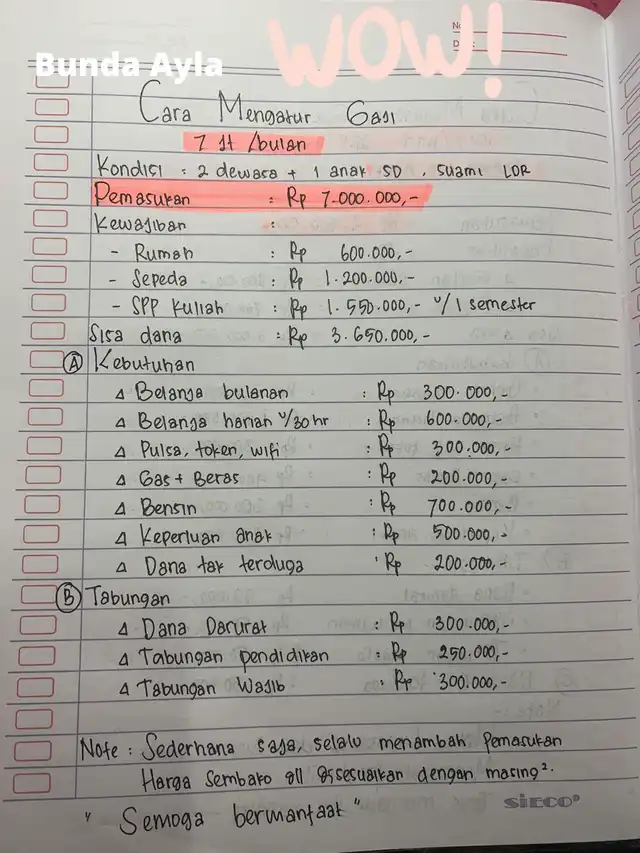 WOW!
Bunda Ayla
No
D
Cara Mengatur Gaji
7 Jt /bulan
Kondisi : 2 dewasa + 1 anak SD , suami LDR
Pemasukan : Rp 7.000.000,-
Kewajiban :
- Rumah : Rp 600.000,-
- Sepeda : Rp 1.200.000,-
- SPP Kuliah : Rp 1.550.000,- u/1 semester
Sisa dana : Rp 3.650.000,-
A Kebutuhan
Δ Belanja bulanan : Rp 300.000,-
Δ Belanja harian u/30 hr : Rp 600.000,-
Δ Pulsa, token, wifi : Rp 300.000,-
Δ Gas + Beras : Rp 200.000,-
Δ Bensin : Rp 700.000,-
Δ Keperluan anak : Rp 500.000,-
Δ Dana tak terduga : Rp 200.000,-
B Tabungan
Δ Dana Darurat : Rp 300.000,-
Δ Tabungan pendidikan : Rp 250.000,-
Δ Tabungan Wajib : Rp 300.000,-
Note : Sederhana saja, selalu menambah Pemasukan
Harga Sembako dll disesuaikan dengan masing².
SiECO
" Semoga bermanfaat "